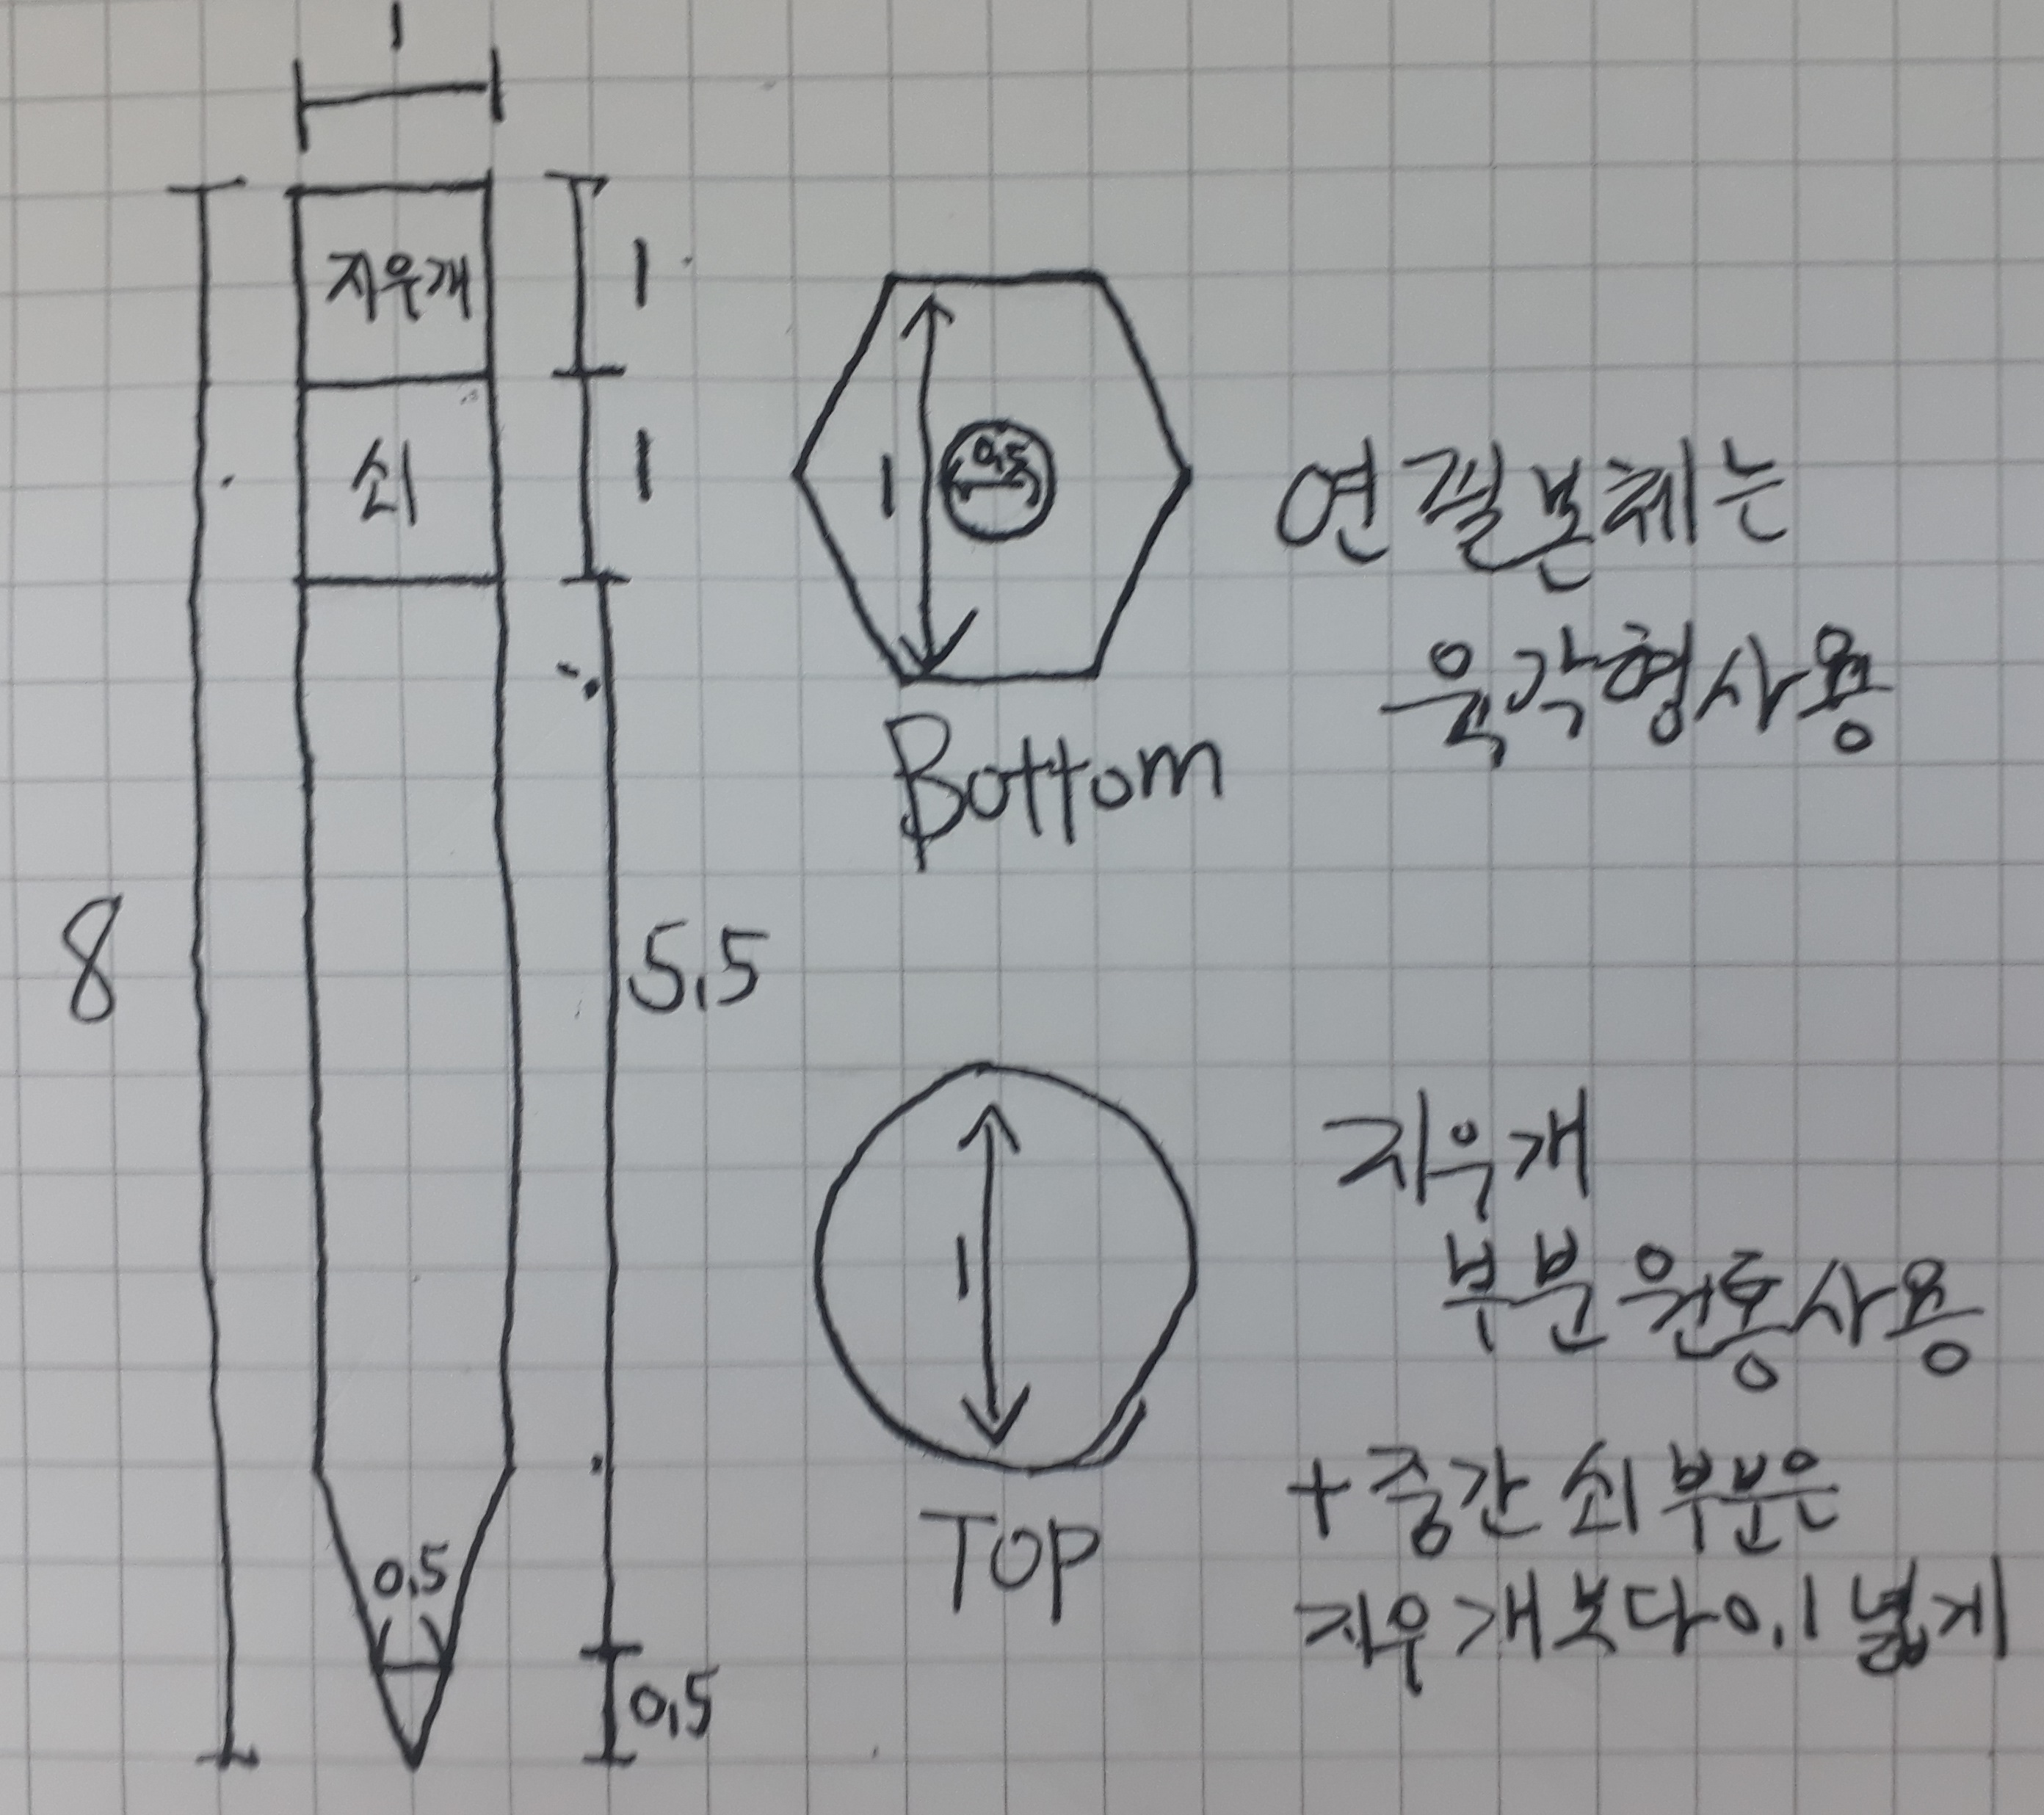 1
지우개
1
쇠
1
8
5.5
0.5
0.5
1
0.5
Bottom
연필본체는
육각형사용
1
TOP
지우개
부분 원통사용
+ 중간 쇠 부분은
지우개보다 0.1 넓게